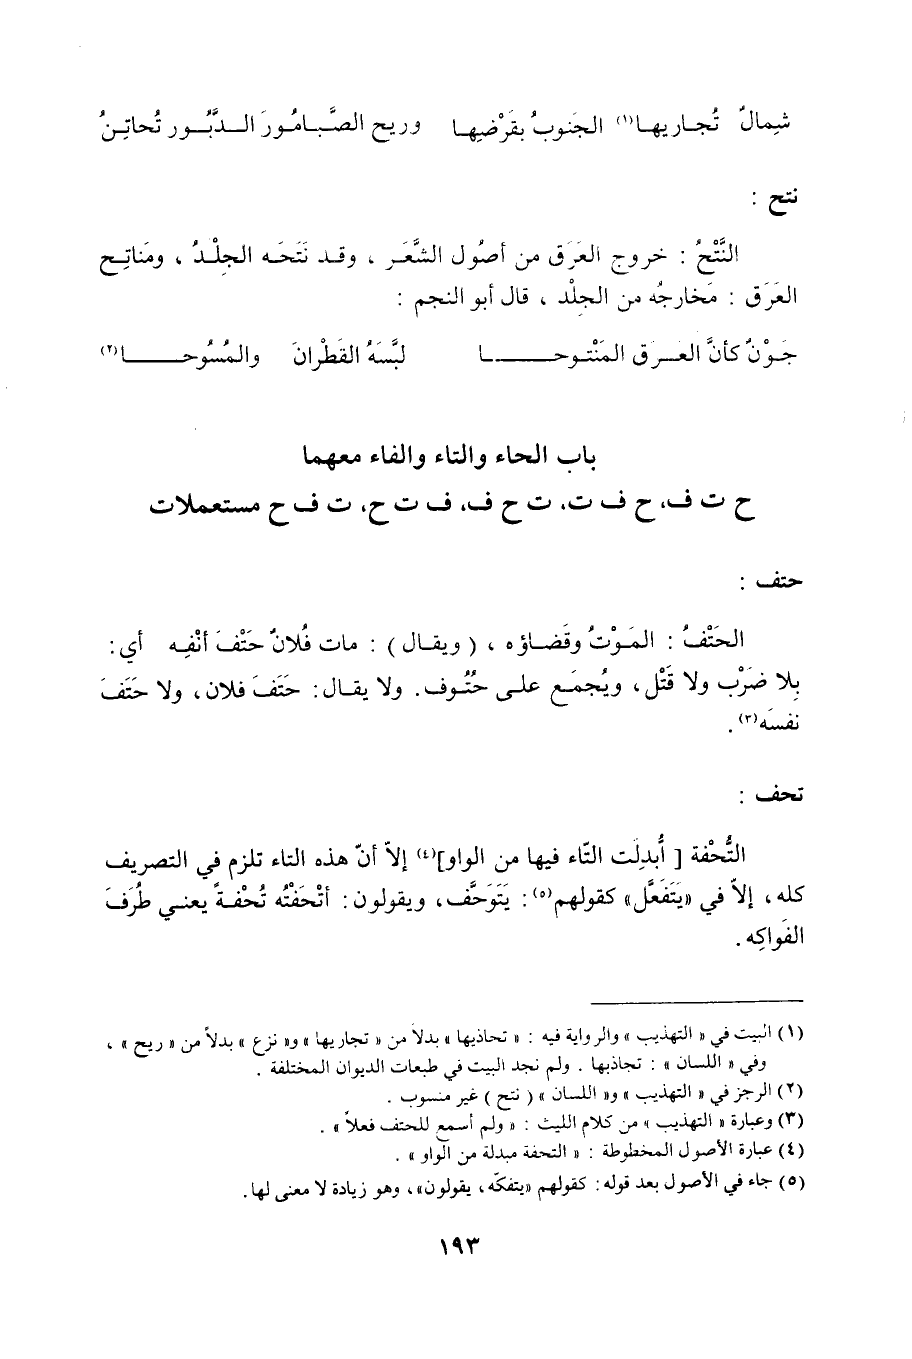 شِمالٌ تُجاريها(١) الجَنوبُ بقَرْضِها وريح الصَّبا مُورَ الدَّبُور تُحاتِنُ
نتح :
النَّتْحُ : خروج العَرَق من أصُول الشَّعَر ، وقد نَتَحَه الجِلْدُ ، ومَناتِح
العَرَق : مَخارجُه من الجِلْد ، قال أبو النجم :
جَوْنٌ كأنَّ العَرق المَنْتوحا لبَّسَهُ القَطْرانَ والمُسُوحا(٢)
باب الحاء والتاء والفاء معهما
ح ت ف، ح ف ت، ت ح ف، ف ت ح، ت ف ح مستعملات
حتف :
الحَتْفُ : المَوْتُ وقَضاؤه ، ( ويقال ) : مات فُلانٌ حَتْفَ أنْفِه أي:
بِلا ضَرْب ولا قَتْل، ويُجمَع على حُتُوف. ولا يقال: حَتَفَ فلان، ولا حَتَفَ
نفسَه(٣) .
تحف :
التُّحْفة [ أُبدِلَت التّاء فيها من الواو](٤) إلاّ أنّ هذه التاء تلزم في التصريف
كله، إلاّ في «يَتَفَعَّل» كقولهم(٥): يَتَوَحَّف، ويقولون: أتْحَفْتُه تُحْفةً يعني طُرَفَ
الفَواكِه.
(١) البيت في « التهذيب » والرواية فيه : « تحاذيها » بدلاً من « تجاريها » و« نزع » بدلاً من « ريح » ،
وفي « اللسان » : تجاذبها . ولم نجد البيت في طبعات الديوان المختلفة .
(٢) الرجز في « التهذيب » و« اللسان » ( نتح ) غير منسوب .
(٣) وعبارة « التهذيب » من كلام الليث : « ولم أسمع للحتف فعلاً » .
(٤) عبارة الأصول المخطوطة : « التحفة مبدلة من الواو » .
(٥) جاء في الأصول بعد قوله: كقولهم «يتفكّه، يقولون»، وهو زيادة لا معنى لها.
١٩٣